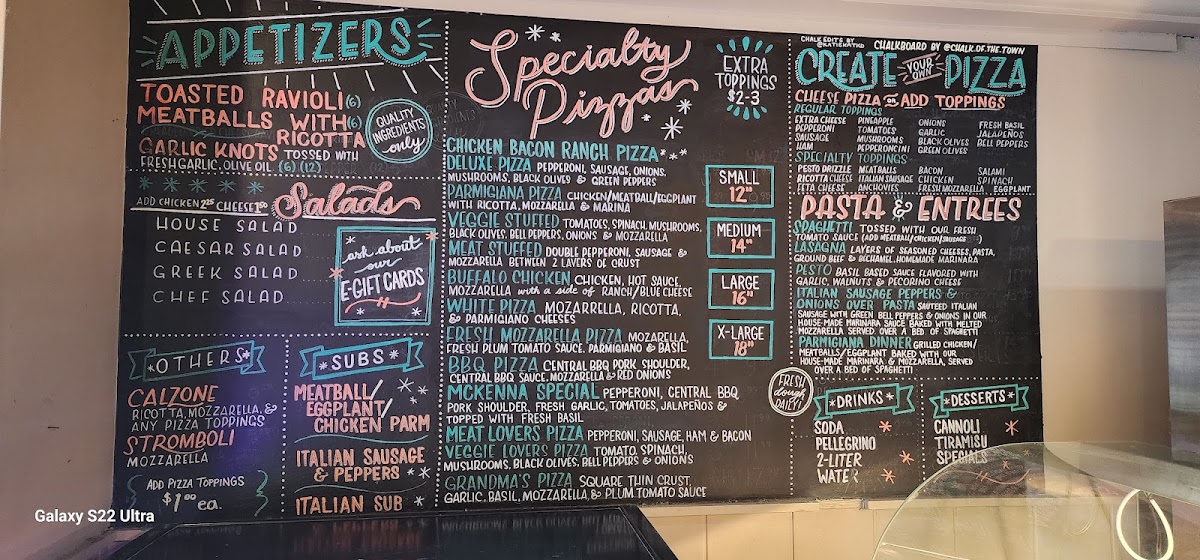 APPETIZERS
TOASTED RAVIOLI (6)
MEATBALLS WITH (6)
RICOTTA
GARLIC KNOTS TOSSED WITH
FRESH GARLIC, OLIVE OIL (6) (12)
QUALITY
INGREDIENTS
only
ADD CHICKEN 2 CHEESE 1
Salads
HOUSE SALAD
CAESAR SALAD
GREEK SALAD
CHEF SALAD
ask about
our
E-GIFT CARDS
*OTHERS*
CALZONE
RICOTTA, MOZZARELLA, &
ANY PIZZA TOPPINGS
STROMBOLI
MOZZARELLA
ADD PIZZA TOPPINGS
$1.00 ea.
*SUBS*
MEATBALL/
EGGPLANT/
CHICKEN PARM
ITALIAN SAUSAGE
& PEPPERS
ITALIAN SUB
Specialty
Pizzas
EXTRA
TOPPINGS
$2-3
CHICKEN BACON RANCH PIZZA
DELUXE PIZZA PEPPERONI, SAUSAGE, ONIONS,
MUSHROOMS, BLACK OLIVES & GREEN PEPPERS
PARMIGIANA PIZZA CHICKEN/MEATBALL/EGGPLANT
WITH RICOTTA, MOZZARELLA & MARINA
VEGGIE STUFFED TOMATOES, SPINACH, MUSHROOMS,
BLACK OLIVES, BELL PEPPERS, ONIONS & MOZZARELLA
MEAT STUFFED DOUBLE PEPPERONI, SAUSAGE &
MOZZARELLA BETWEEN 2 LAYERS OF CRUST
BUFFALO CHICKEN CHICKEN, HOT SAUCE,
MOZZARELLA with a side of RANCH/BLUE CHEESE
WHITE PIZZA MOZARRELLA, RICOTTA,
& PARMIGIANO CHEESES
FRESH MOZZARELLA PIZZA MOZARELLA,
FRESH PLUM TOMATO SAUCE, PARMIGIANO & BASIL
BBQ PIZZA CENTRAL BBQ PORK SHOULDER,
CENTRAL BBQ SAUCE, MOZZARELLA & RED ONIONS
MCKENNA SPECIAL PEPPERONI, CENTRAL BBQ
PORK SHOULDER, FRESH GARLIC, TOMATOES, JALAPEÑOS &
TOPPED WITH FRESH BASIL
MEAT LOVERS PIZZA PEPPERONI, SAUSAGE, HAM & BACON
VEGGIE LOVERS PIZZA TOMATO, SPINACH,
MUSHROOMS, BLACK OLIVES, BELL PEPPERS & ONIONS
GRANDMA'S PIZZA SQUARE THIN CRUST,
GARLIC, BASIL, MOZZARELLA, & PLUM TOMATO SAUCE
SMALL
12
MEDIUM
14
LARGE
16
X-LARGE
18
FRESH
dough
DAILY!
CHALK EDITS BY
@KATIEHATKD
CHALKBOARD BY @CHALK.OF.THE.TOWN
CREATE YOUR OWN PIZZA
CHEESE PIZZA OR ADD TOPPINGS
REGULAR TOPPINGS
EXTRA CHEESE PINEAPPLE ONIONS FRESH BASIL
PEPPERONI TOMATOES GARLIC JALAPEÑOS
SAUSAGE MUSHROOMS BLACK OLIVES BELL PEPPERS
HAM PEPPERONCINI GREEN OLIVES
SPECIALTY TOPPINGS
PESTO DRIZZLE MEATBALLS BACON SALAMI
RICOTTA CHEESE ITALIAN SAUSAGE CHICKEN SPINACH
FETA CHEESE ANCHOVIES FRESH MOZZARELLA EGGPLANT
PASTA & ENTREES
SPAGHETTI TOSSED WITH OUR FRESH
TOMATO SAUCE (ADD MEATBALL/CHICKEN/SAUSAGE
LASAGNA LAYERS OF SEASONED CHEESES, PASTA,
GROUND BEEF & BECHAMEL, HOMEMADE MARINARA
PESTO BASIL BASED SAUCE FLAVORED WITH
GARLIC, WALNUTS & PECORINO CHEESE
ITALIAN SAUSAGE PEPPERS &
ONIONS OVER PASTA SAUTEED ITALIAN
SAUSAGE WITH GREEN BELL PEPPERS & ONIONS IN OUR
HOUSE-MADE MARINARA SAUCE BAKED WITH MELTED
MOZZARELLA SERVED OVER A BED OF SPAGHETTI
PARMIGIANA DINNER GRILLED CHICKEN/
MEATBALLS/EGGPLANT BAKED WITH OUR
HOUSE-MADE MARINARA & MOZZARELLA, SERVED
OVER A BED OF SPAGHETTI
*DRINKS*
SODA
PELLEGRINO
2-LITER
WATER
*DESSERTS*
CANNOLI
TIRAMISU
SPECIALS
Galaxy S22 Ultra